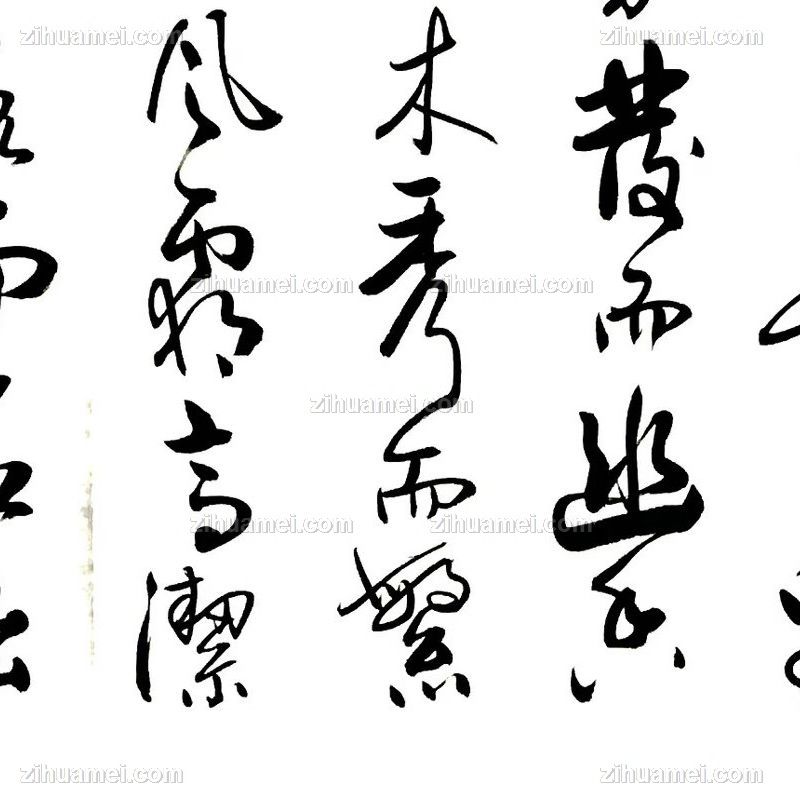 發而幽香
木秀而繁
風霜高潔
zihuamei.com
zihuamei.com
zihuamei.com
zihuamei.com
zihuamei.com
zihuamei.com
zihuamei.com
zihuamei.com
zihuamei.com